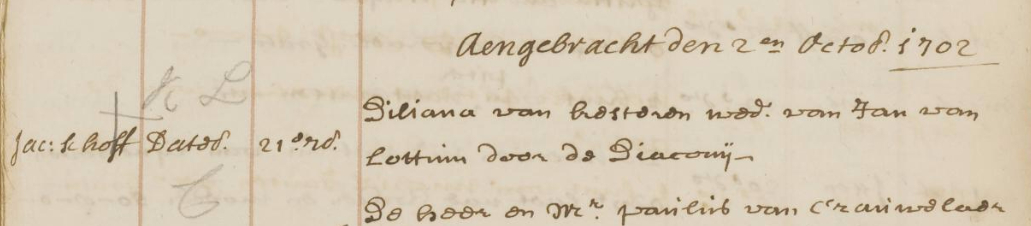 Aengebracht den 2en Octob. 1702
K L
Jac: khoff Dateb. 21 e rb. Diliana van hesteren wed. van Jan van
Lottum door de Diaconij
De heer en Mr. paulus van Crauwelaer